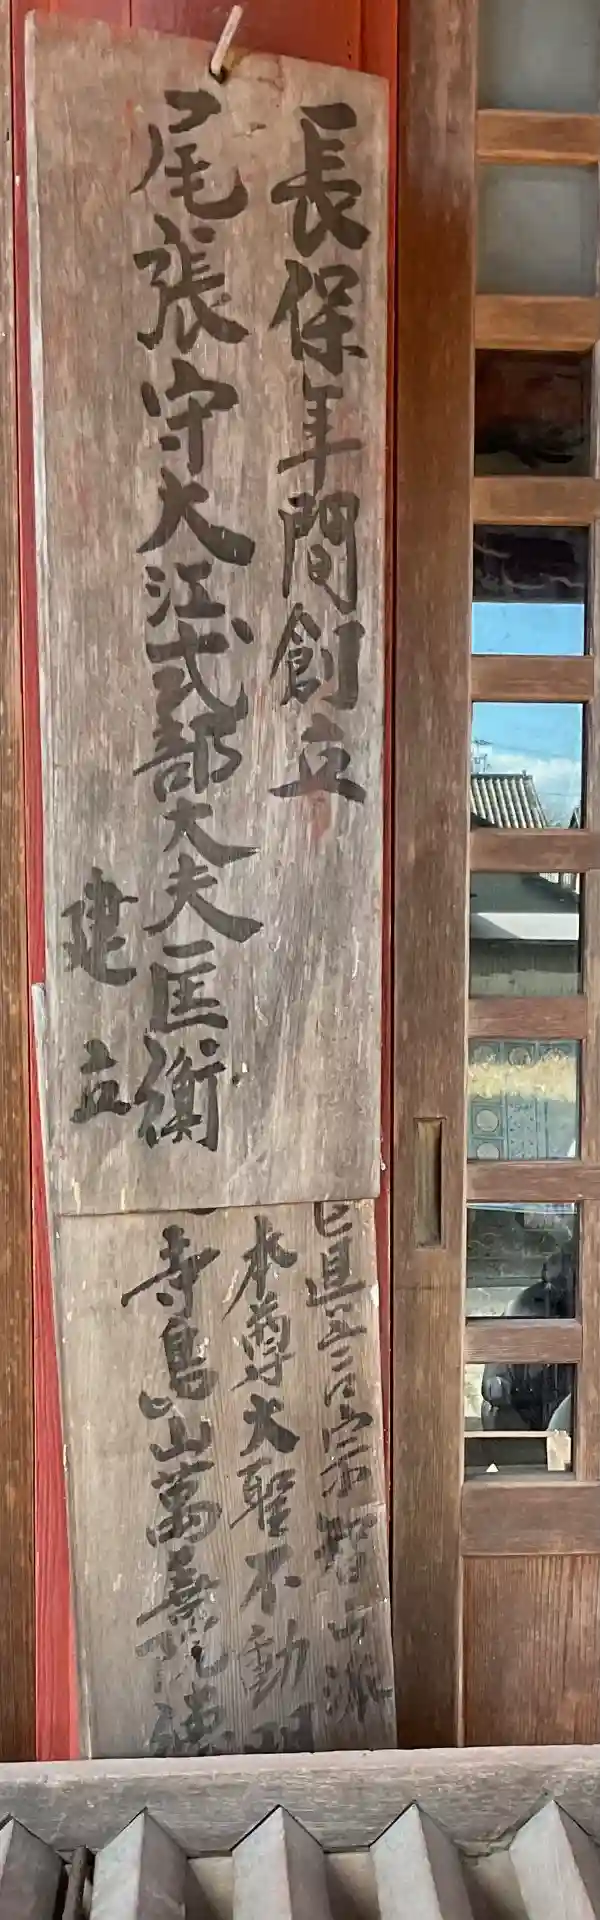 長保年間創立
尾張守大江式部大夫匡衡
建立
真言宗智山派
本尊大聖不動明
寺鳥山萬善院